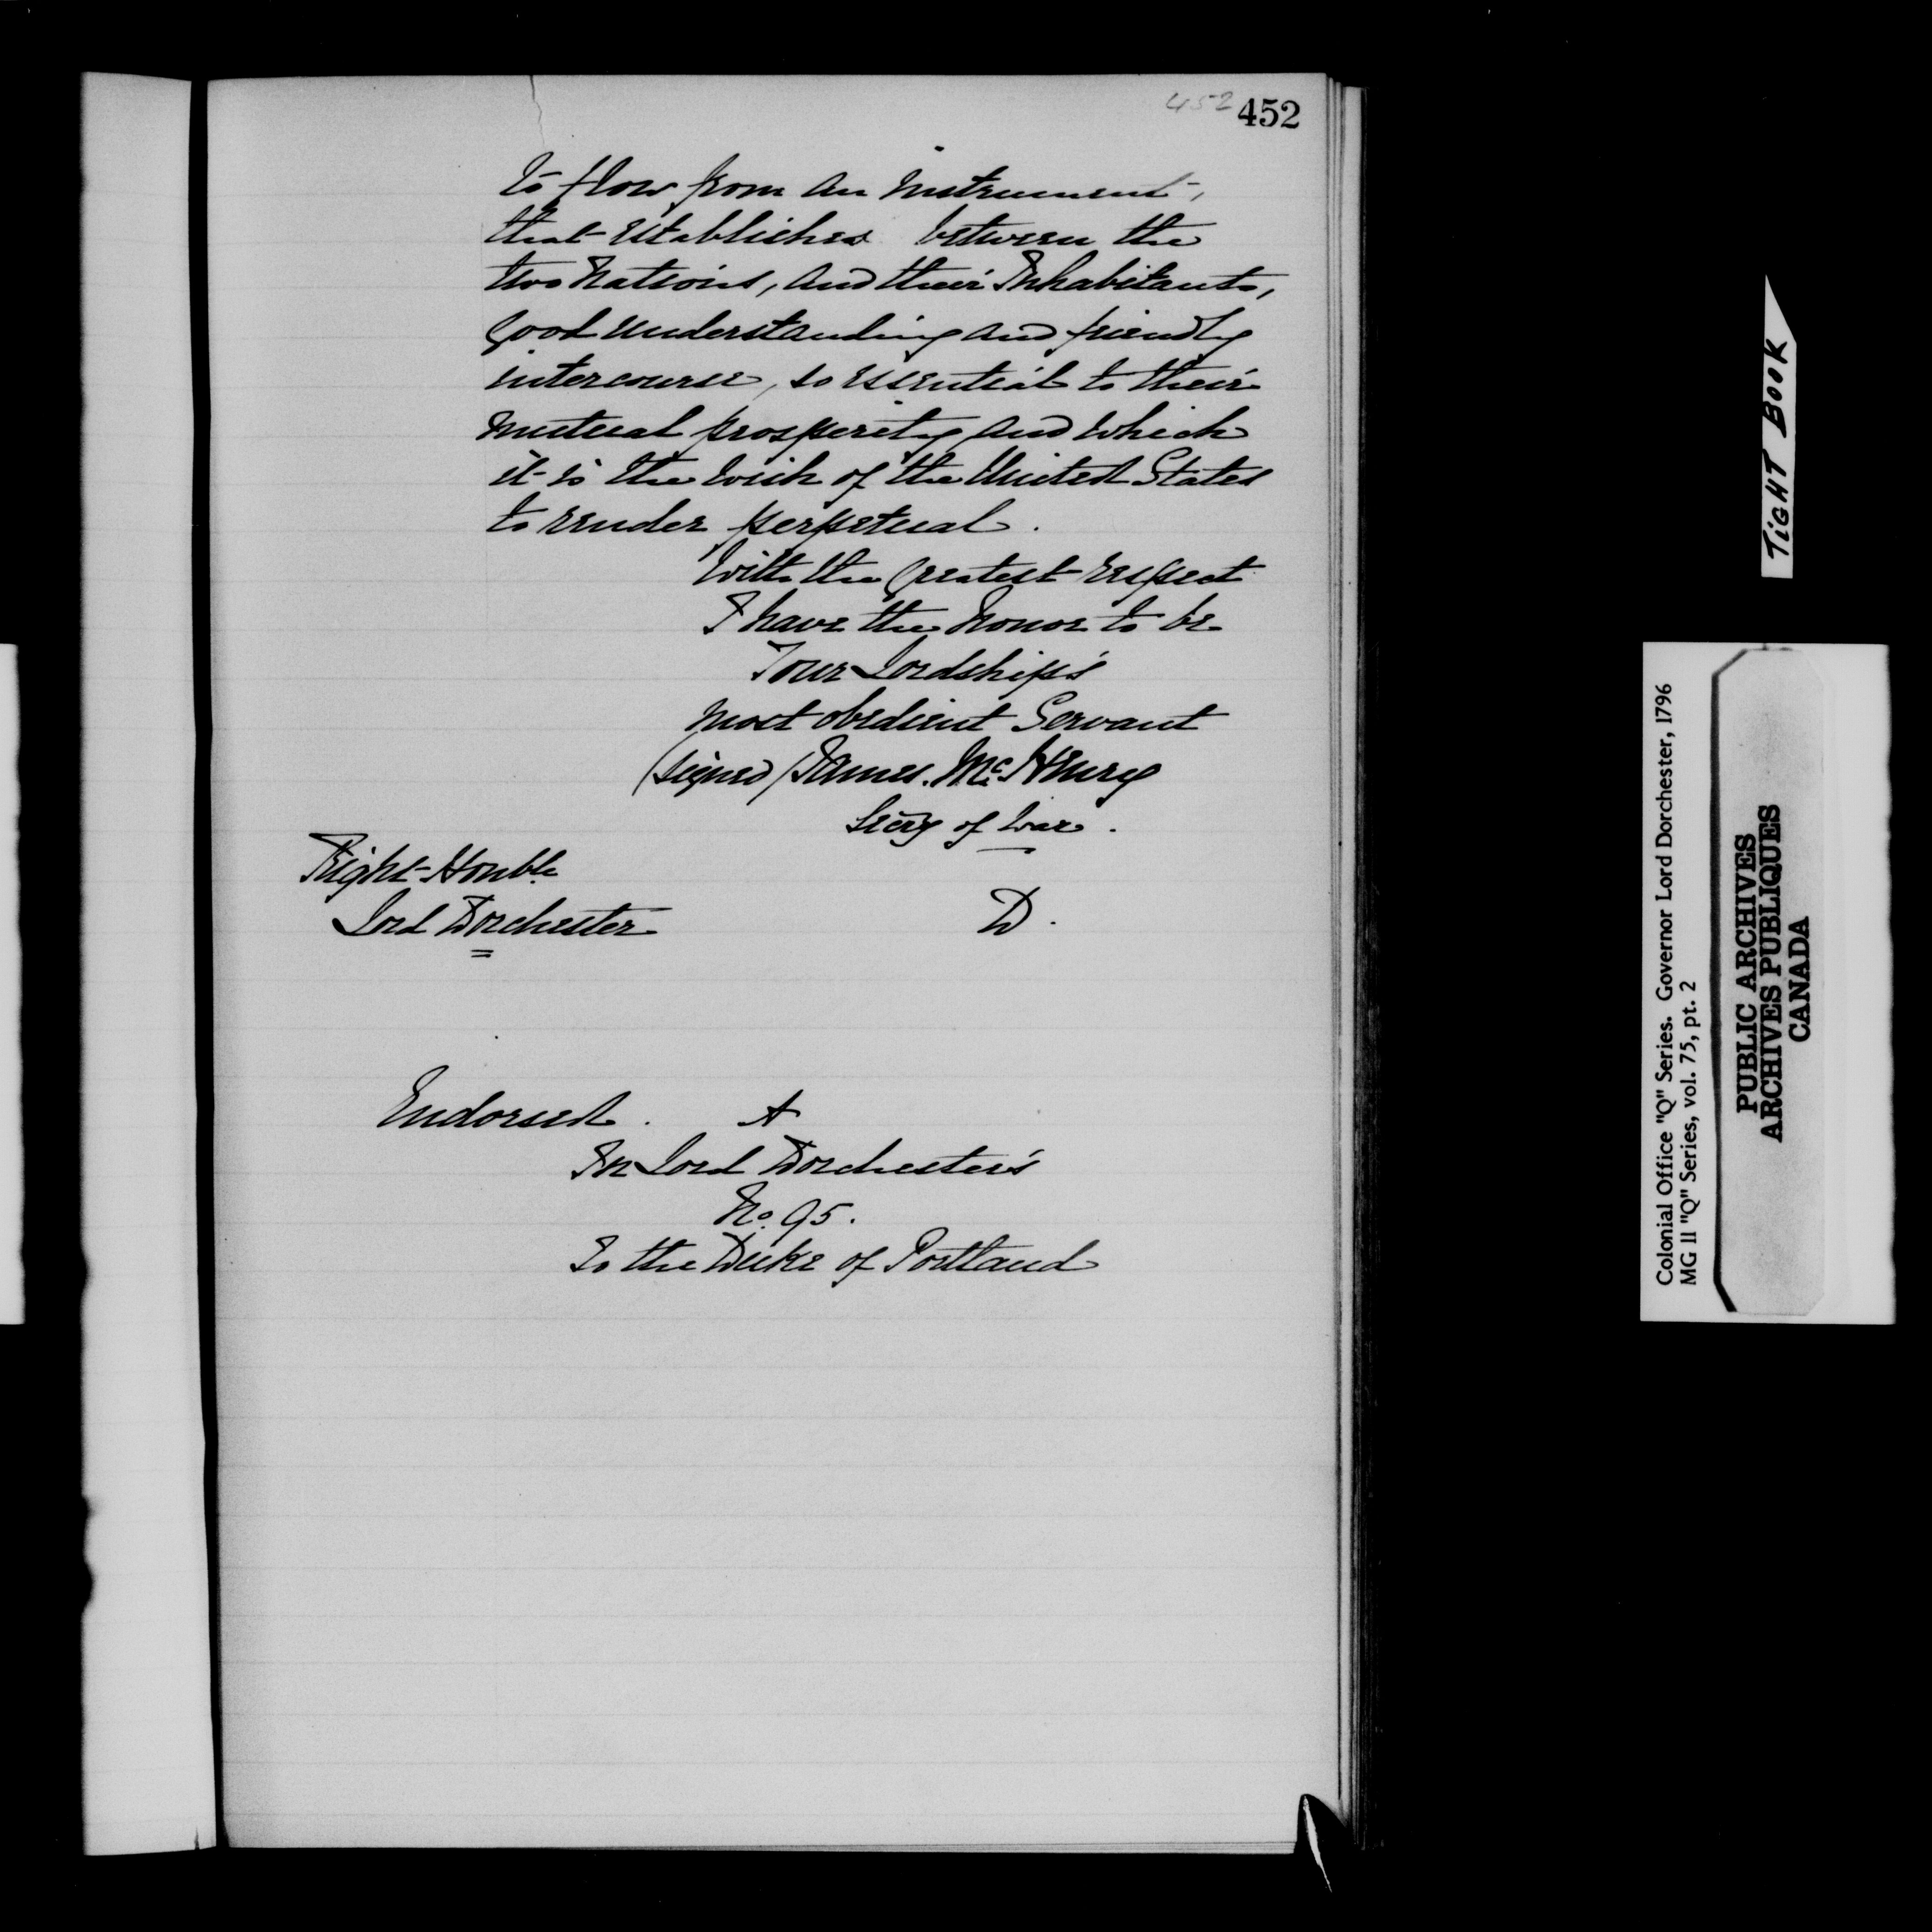 452 452
to flow from an instrument,
that establishes between the
two Nations, and their Inhabitants,
good understanding and friendly
intercourse, so essential to their
mutual prosperity and which
it is the wish of the United States
to render perpetual.
With the greatest respect
I have the honor to be
Your Lordship's
most obedient Servant
(signed) James McHenry
Secry of War.
Right Honble
Lord Dorchester
D.
Endorsed. A
In Lord Dorchester's
No. 95.
To the Duke of Portland
TIGHT BOOK
Colonial Office "Q" Series. Governor Lord Dorchester, 1796
MG 11 "Q" Series, vol. 75, pt. 2
PUBLIC ARCHIVES
ARCHIVES PUBLIQUES
CANADA